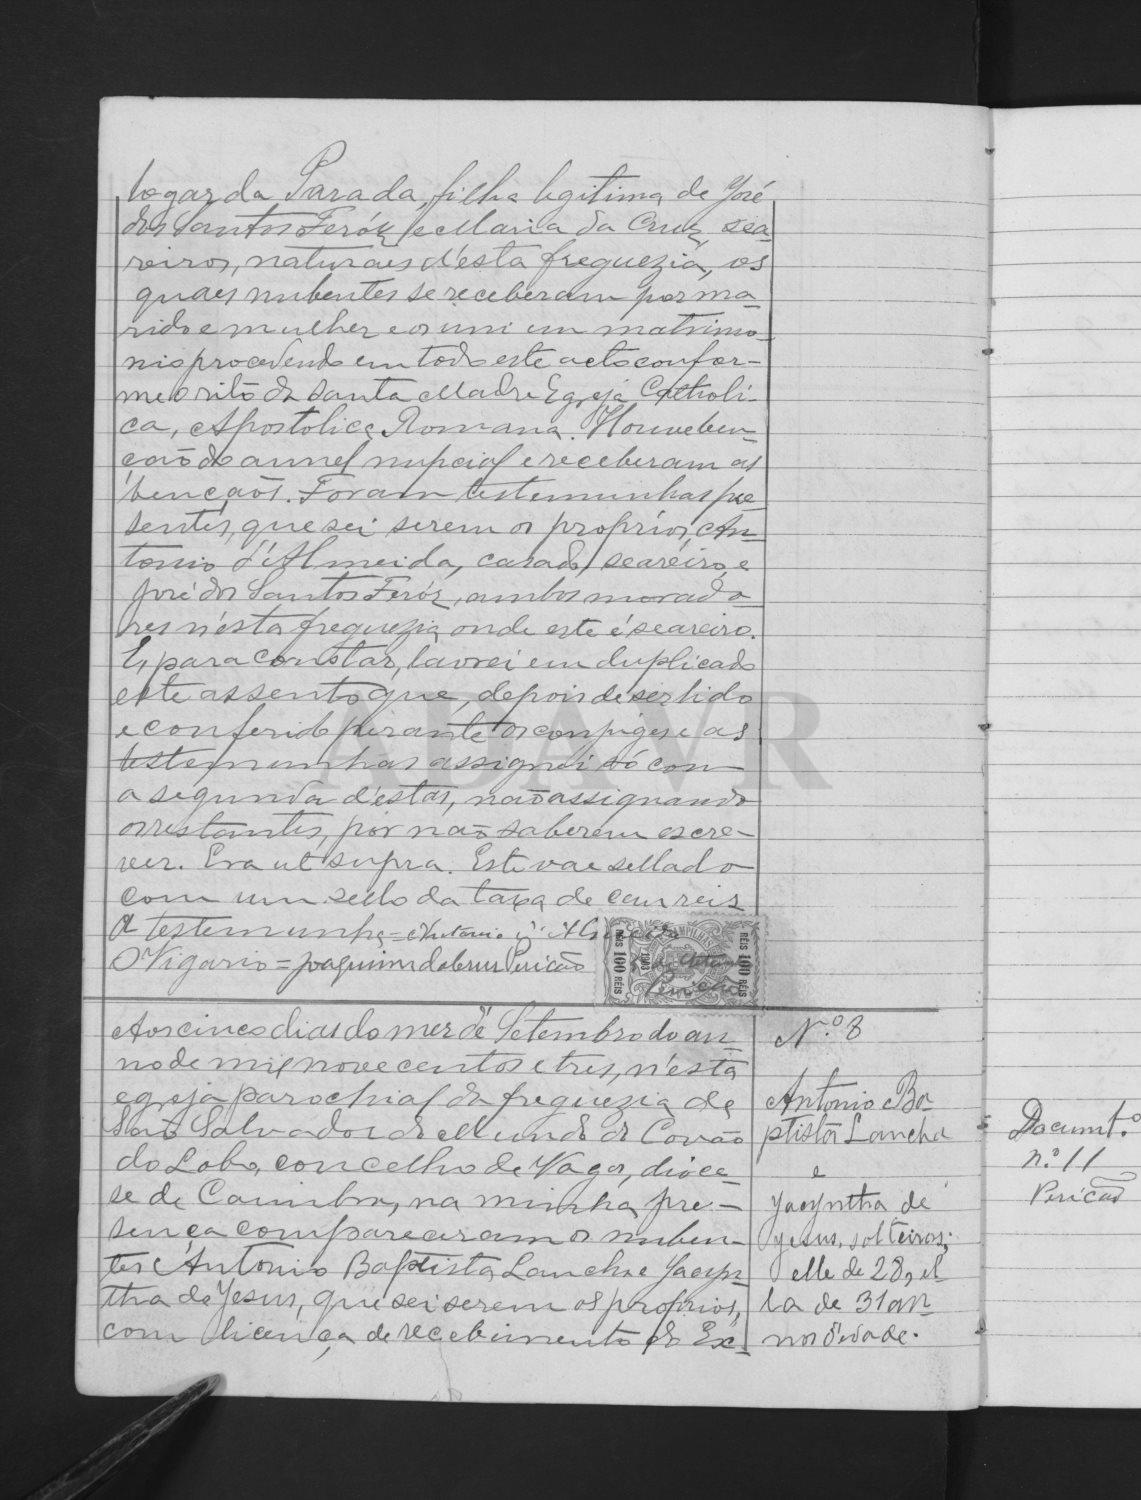 logar da Parada, filha legitima de José
dos Santos Feróz e Maria da Cruz, sea-
reiros, naturaes d'esta freguezia, os
quaes nubentes se receberam por ma-
rido e mulher e os uni em matrimo-
nio procedendo em todo este acto confor-
me o rito da Santa Madre Egreja Catholi-
ca, Apostolica Romana. Houve ben-
ção do annel nupcial e receberam as
bençaõs. Foram testemunhas pre-
sentes, que sei serem os proprios, An-
tonio d'Almeida, casado, seareiro, e
José dos Santos Feróz, ambos morado-
res n'esta freguezia onde este é seareiro.
E, para constar, lavrei em duplicado
este assento que, depois de ser lido
e conferido perante os conjuges e as
testemunhas assignei só com
a segunda d'estas, não assignando
os restantes, por não saberem escre-
ver. Era ut supra. Este vae sellado
com um sello da taxa de cem reis
A testemunha = Antonio d'Almeida
O Vigario = Joaquim da Cruz Pericão
RÉIS 100 RÉIS
1903
RÉIS 100 RÉIS
Aos cinco dias do mez de Setembro do an-
no de mil nove centos e tres, n'esta
egreja parochial da freguezia de
São Salvador do Mundo de Covão
do Lobo, concelho de Vagos, dioce-
se de Coimbra, na minha pre-
sença compareceram os nuben-
tes Antonio Baptista Lancha e Jacyn-
tha de Jesus, que sei serem os proprios,
com licença de recebimento do Ex-
N.º 8
Antonio Ba-
ptista Lancha
e
Jacyntha de
Jesus, solteiros;
elle de 28, el-
la de 31 an-
nos d'edade.
Documt.º
n.º 11
Pericão
ADAVR